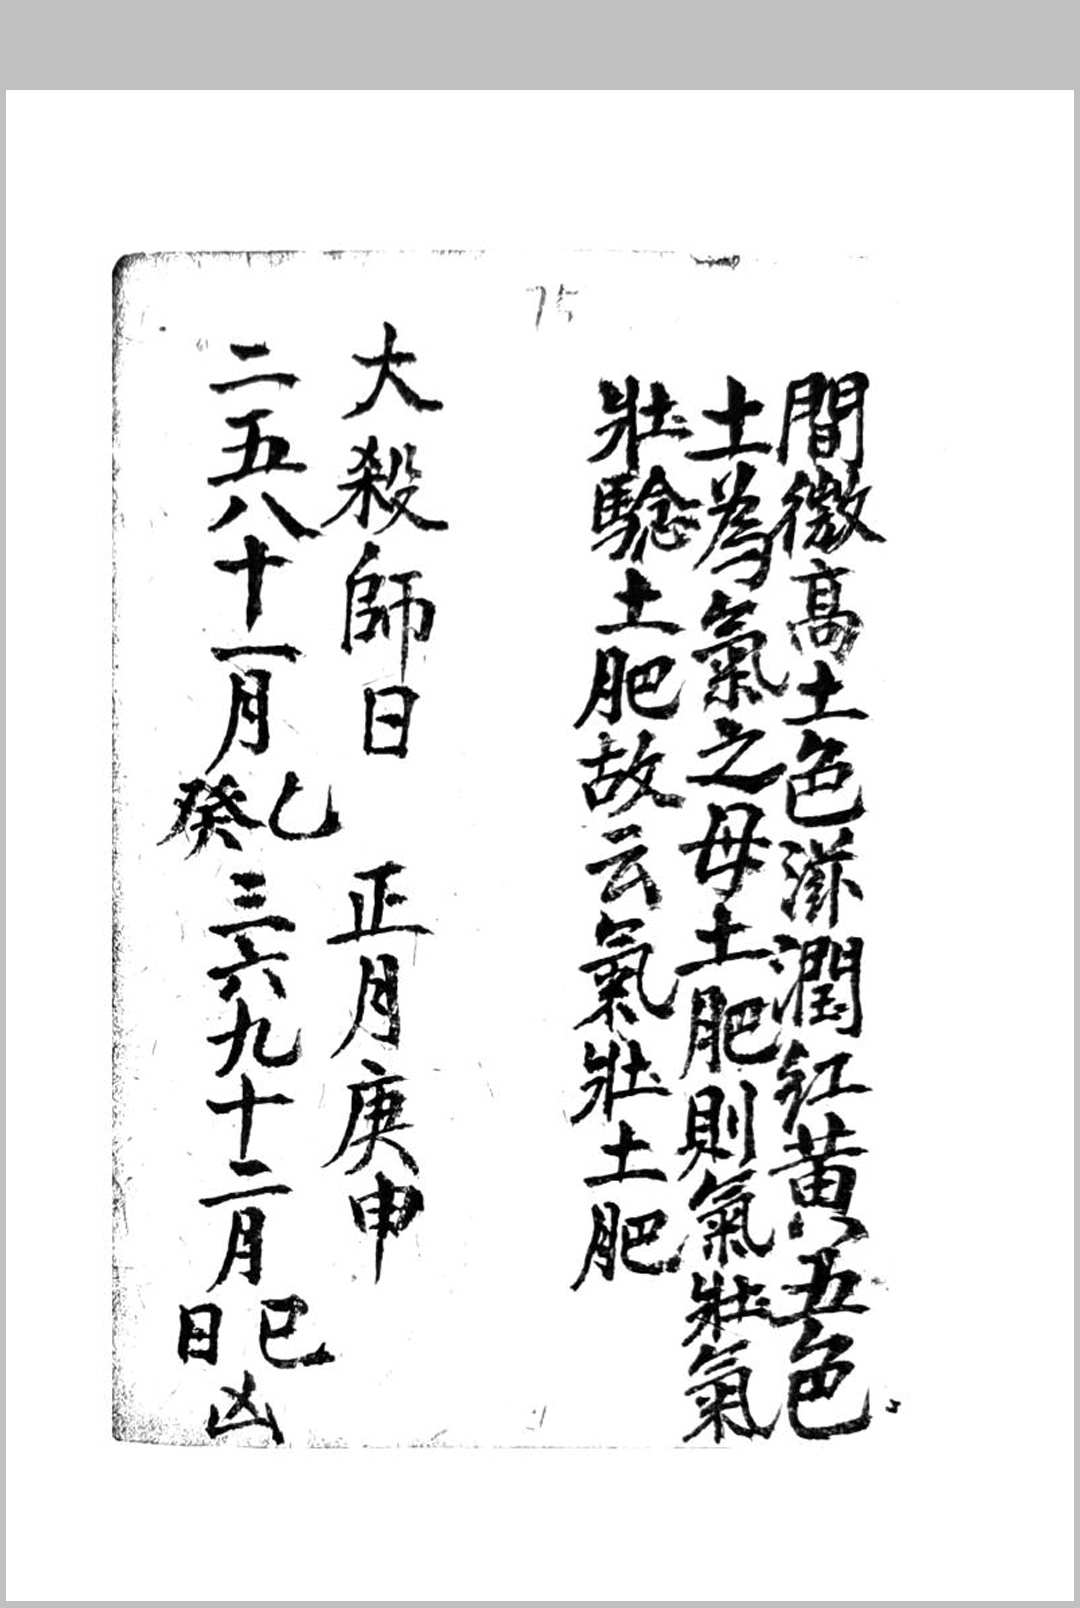 75
間微高土色滋潤紅黃五色
土為氣之母土肥則氣壯氣
壯騐土肥故云氣壯土肥
大殺師日 正月庚申
二五八十一月乙癸三六九十二月巳日凶